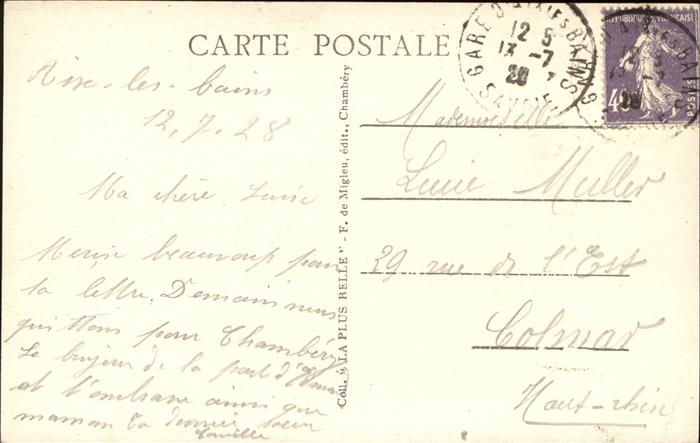 CARTE POSTALE
Aix-les-bains
12.7.28
Ma chère Lucie
Merci beaucoup pour
ta lettre. Demain nous
quittons pour Chambéry
Le bonjour de la part d'
et t'embrasse ainsi que
maman ta
Coll. "LA PLUS BELLE" - F. de Migieu, édit., Chambéry
GARE D'AIX LES BAINS
12 5
13 -7
28
SAVOIE
RÉPUBLIQUE FRANÇAISE
40
Mademoiselle
Lucie Muller
29 rue de l'Est
Colmar
Haut-rhin